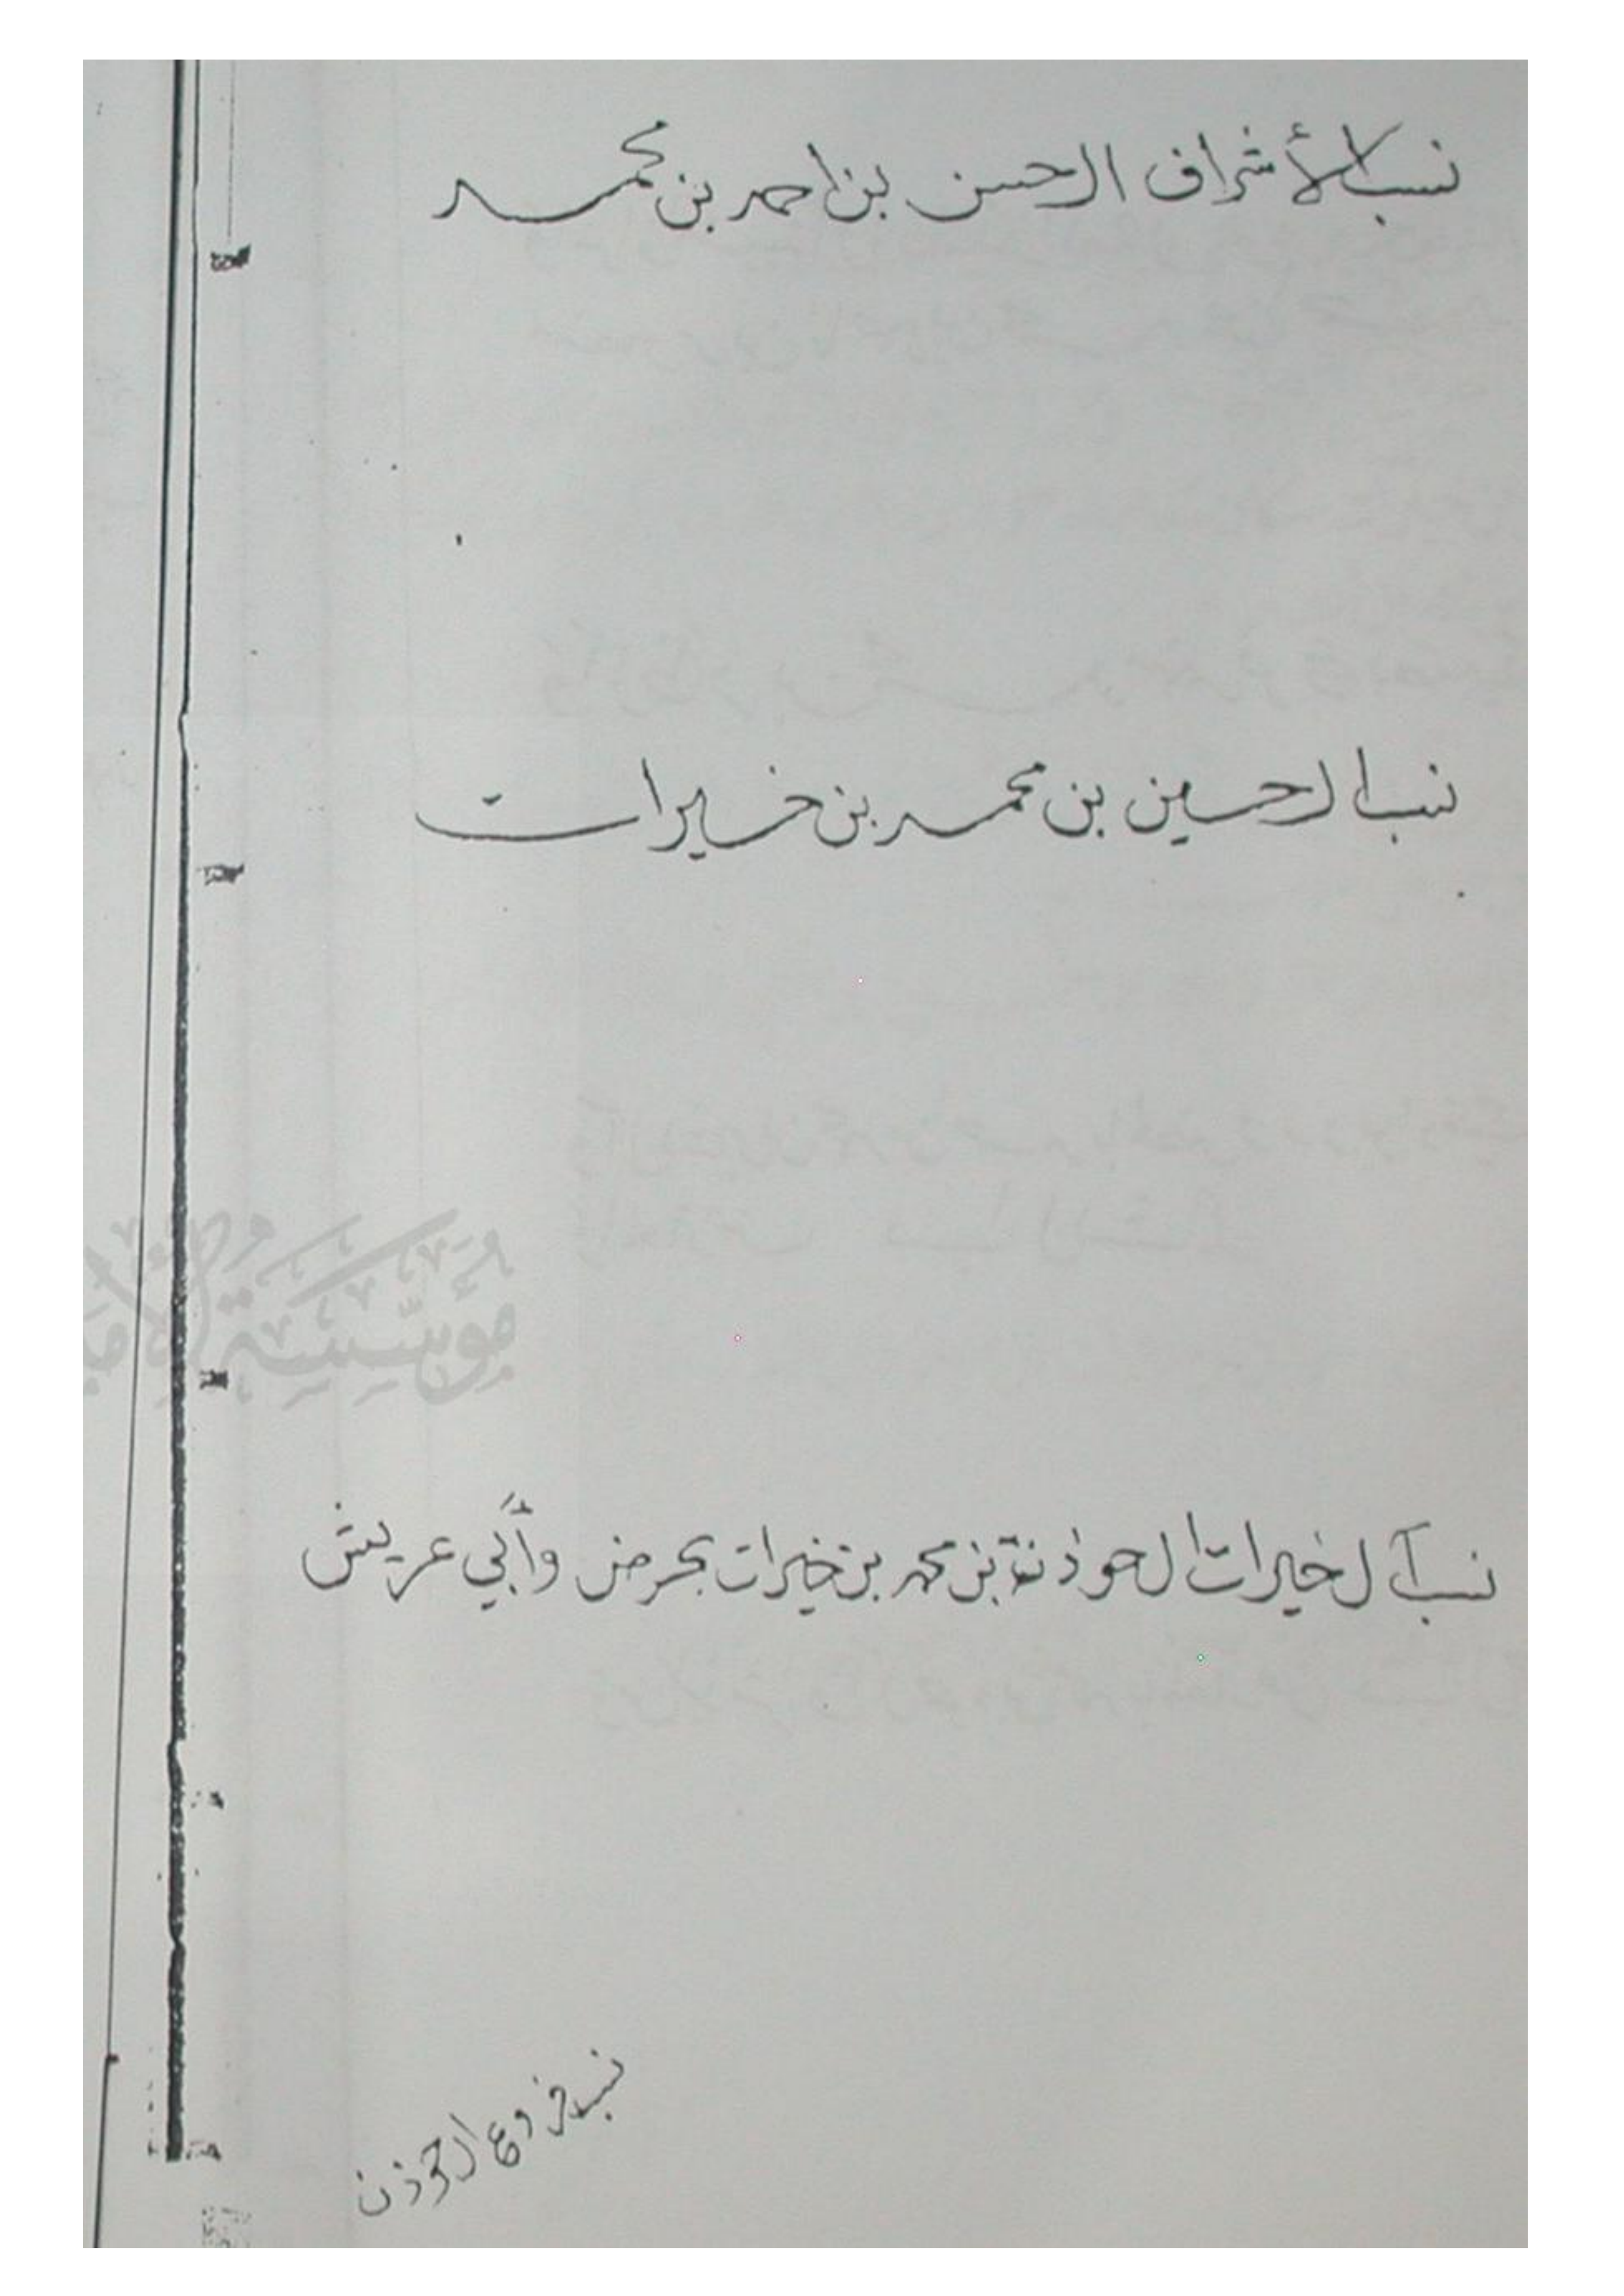 نسب الأشراف الحسن بن احمد بن محمد
نسب الحسين بن محمد بن خيرات
مؤسسة الإمام
نسب آل خيرات الحوذنة بن محمد بن خيرات بحرض وأبي عريش
نسب فروع الحوذن